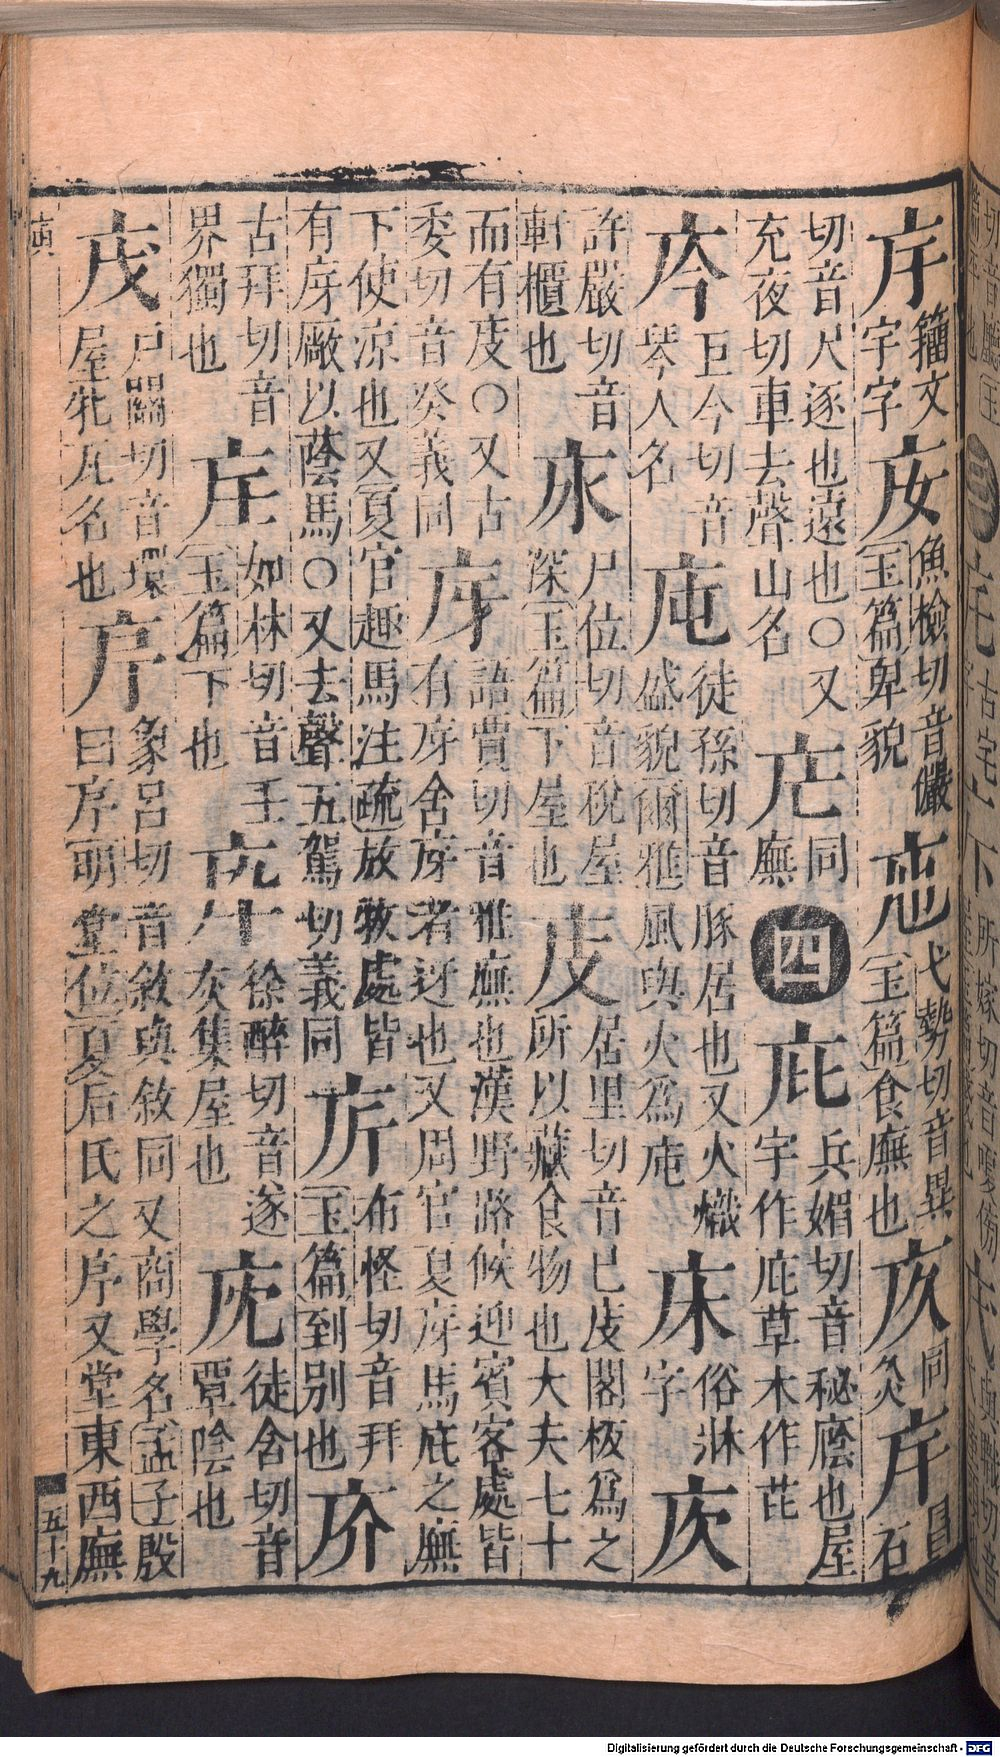 籒文宇字 㡋 魚檢切音儼玉篇卑貌 弋勢切音異玉篇食廡也 同灸 昌石
切音尺逐也遠也○又充夜切車去聲山名 同廡 四 庇 兵媚切音秘廕也屋宇作庇草木作芘
庈 巨今切音琴人名 庉 徒孫切音豚居也又火熾盛貌爾雅風與火爲庉 床 俗牀字
許嚴切音軒櫃也 尸位切音稅屋深玉篇下屋也 庋 居里切音已庋閣板爲之所以藏食物也大夫七十
而有庋○又古委切音癸義同 庌 語賈切音雅廡也漢野路候迎賓客處皆有庌舍庌者迓也又周官夏庌馬庇之廡
下使涼也又夏官趣馬注疏放牧處皆有庌廠以蔭馬○又去聲五駕切義同 布怪切音拜玉篇到別也 庎
古拜切音界獨也 如林切音壬玉篇下也 徐醉切音遂灰集屋也 徒含切音覃陰也
戶關切音環屋牝瓦名也 序 象呂切音敘與敘同又商學名孟子殷曰序明堂位夏后氏之序又堂東西廡
寅
五十九
Digitalisierung gefördert durch die Deutsche Forschungsgemeinschaft - DFG